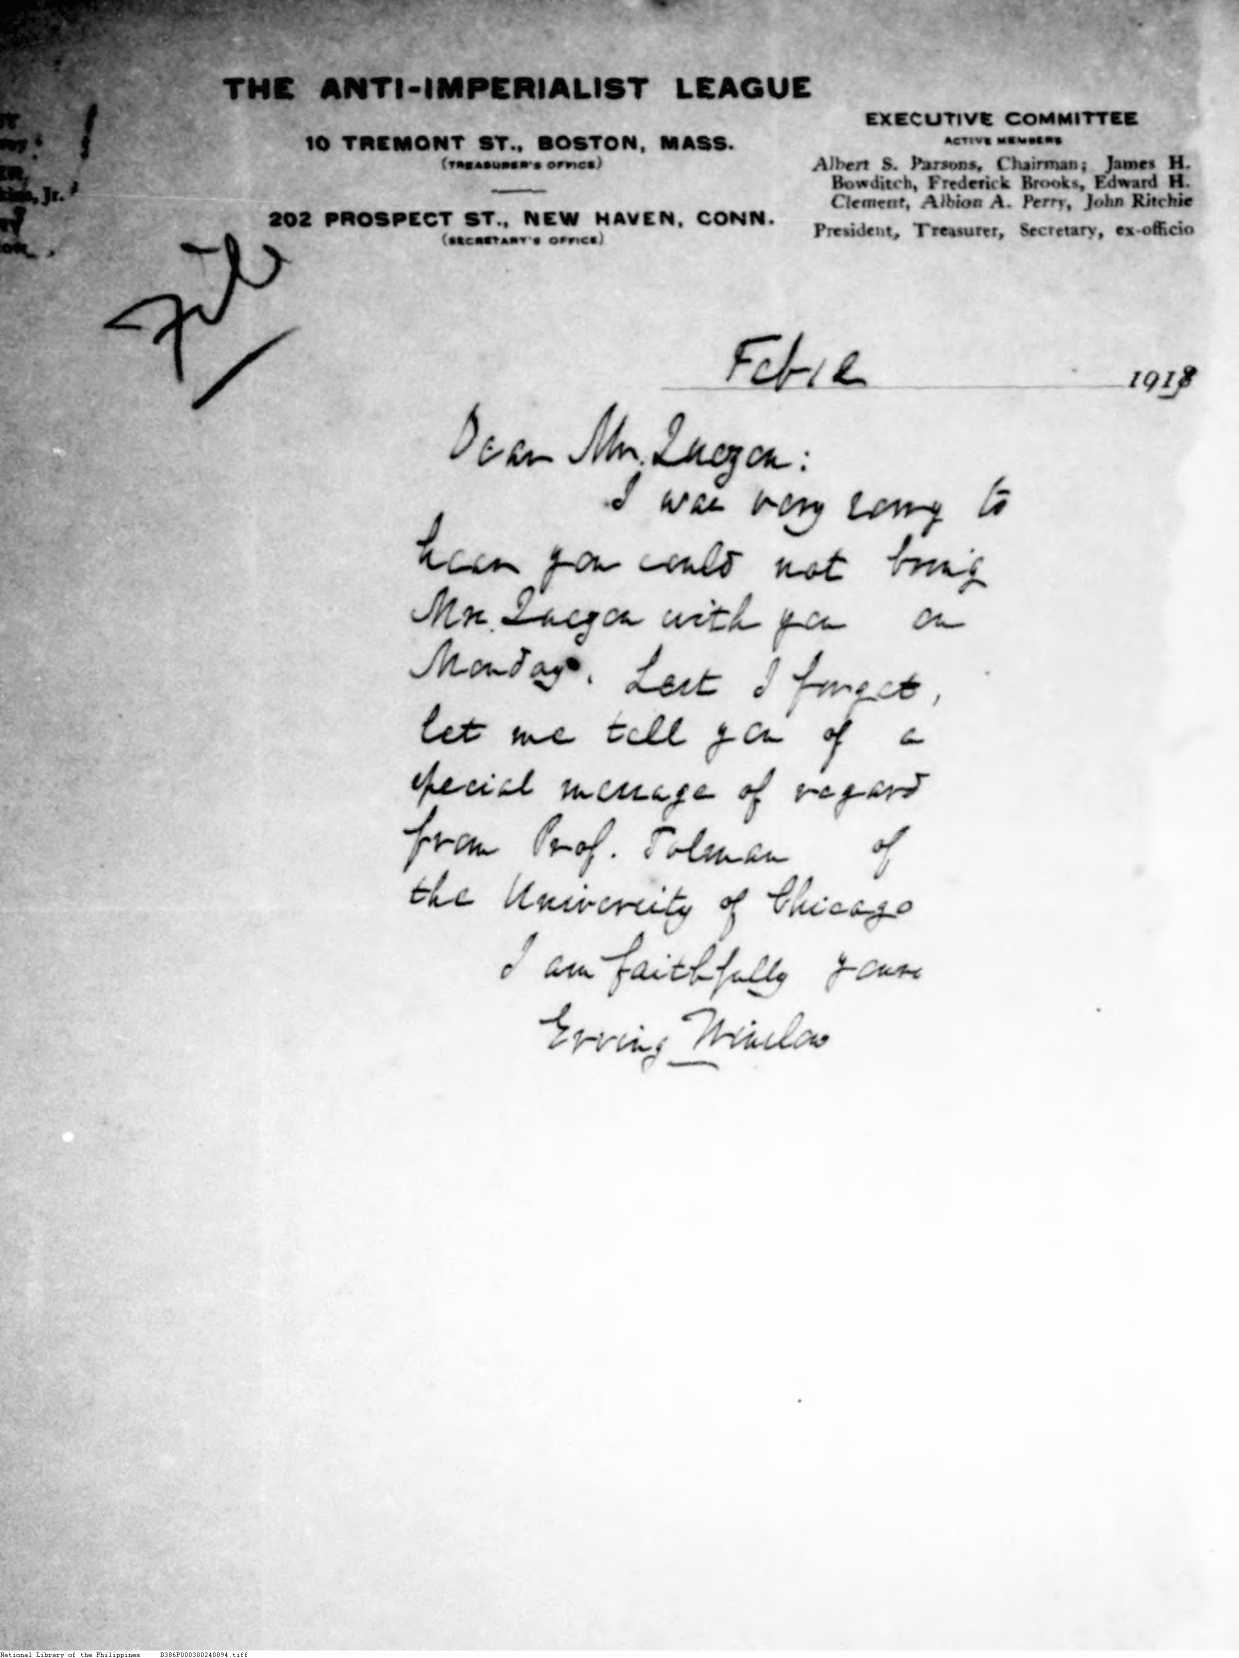 THE ANTI-IMPERIALIST LEAGUE
10 TREMONT ST., BOSTON, MASS.
(TREASURER'S OFFICE)
202 PROSPECT ST., NEW HAVEN, CONN.
(SECRETARY'S OFFICE)
EXECUTIVE COMMITTEE
ACTIVE MEMBERS
Albert S. Parsons, Chairman; James H.
Bowditch, Frederick Brooks, Edward H.
Clement, Albion A. Perry, John Ritchie
President, Treasurer, Secretary, ex-officio
Jr.
File
Feb 12 1918
Dear Mr. Quezon:
I was very sorry to
hear you could not bring
Mr. Quezon with you on
Monday. Lest I forget,
let me tell you of a
special message of regard
from Prof. Tolman of
the University of Chicago
I am faithfully yours
Erving Winslow
National Library of the Philippines B386P000300240094.tiff